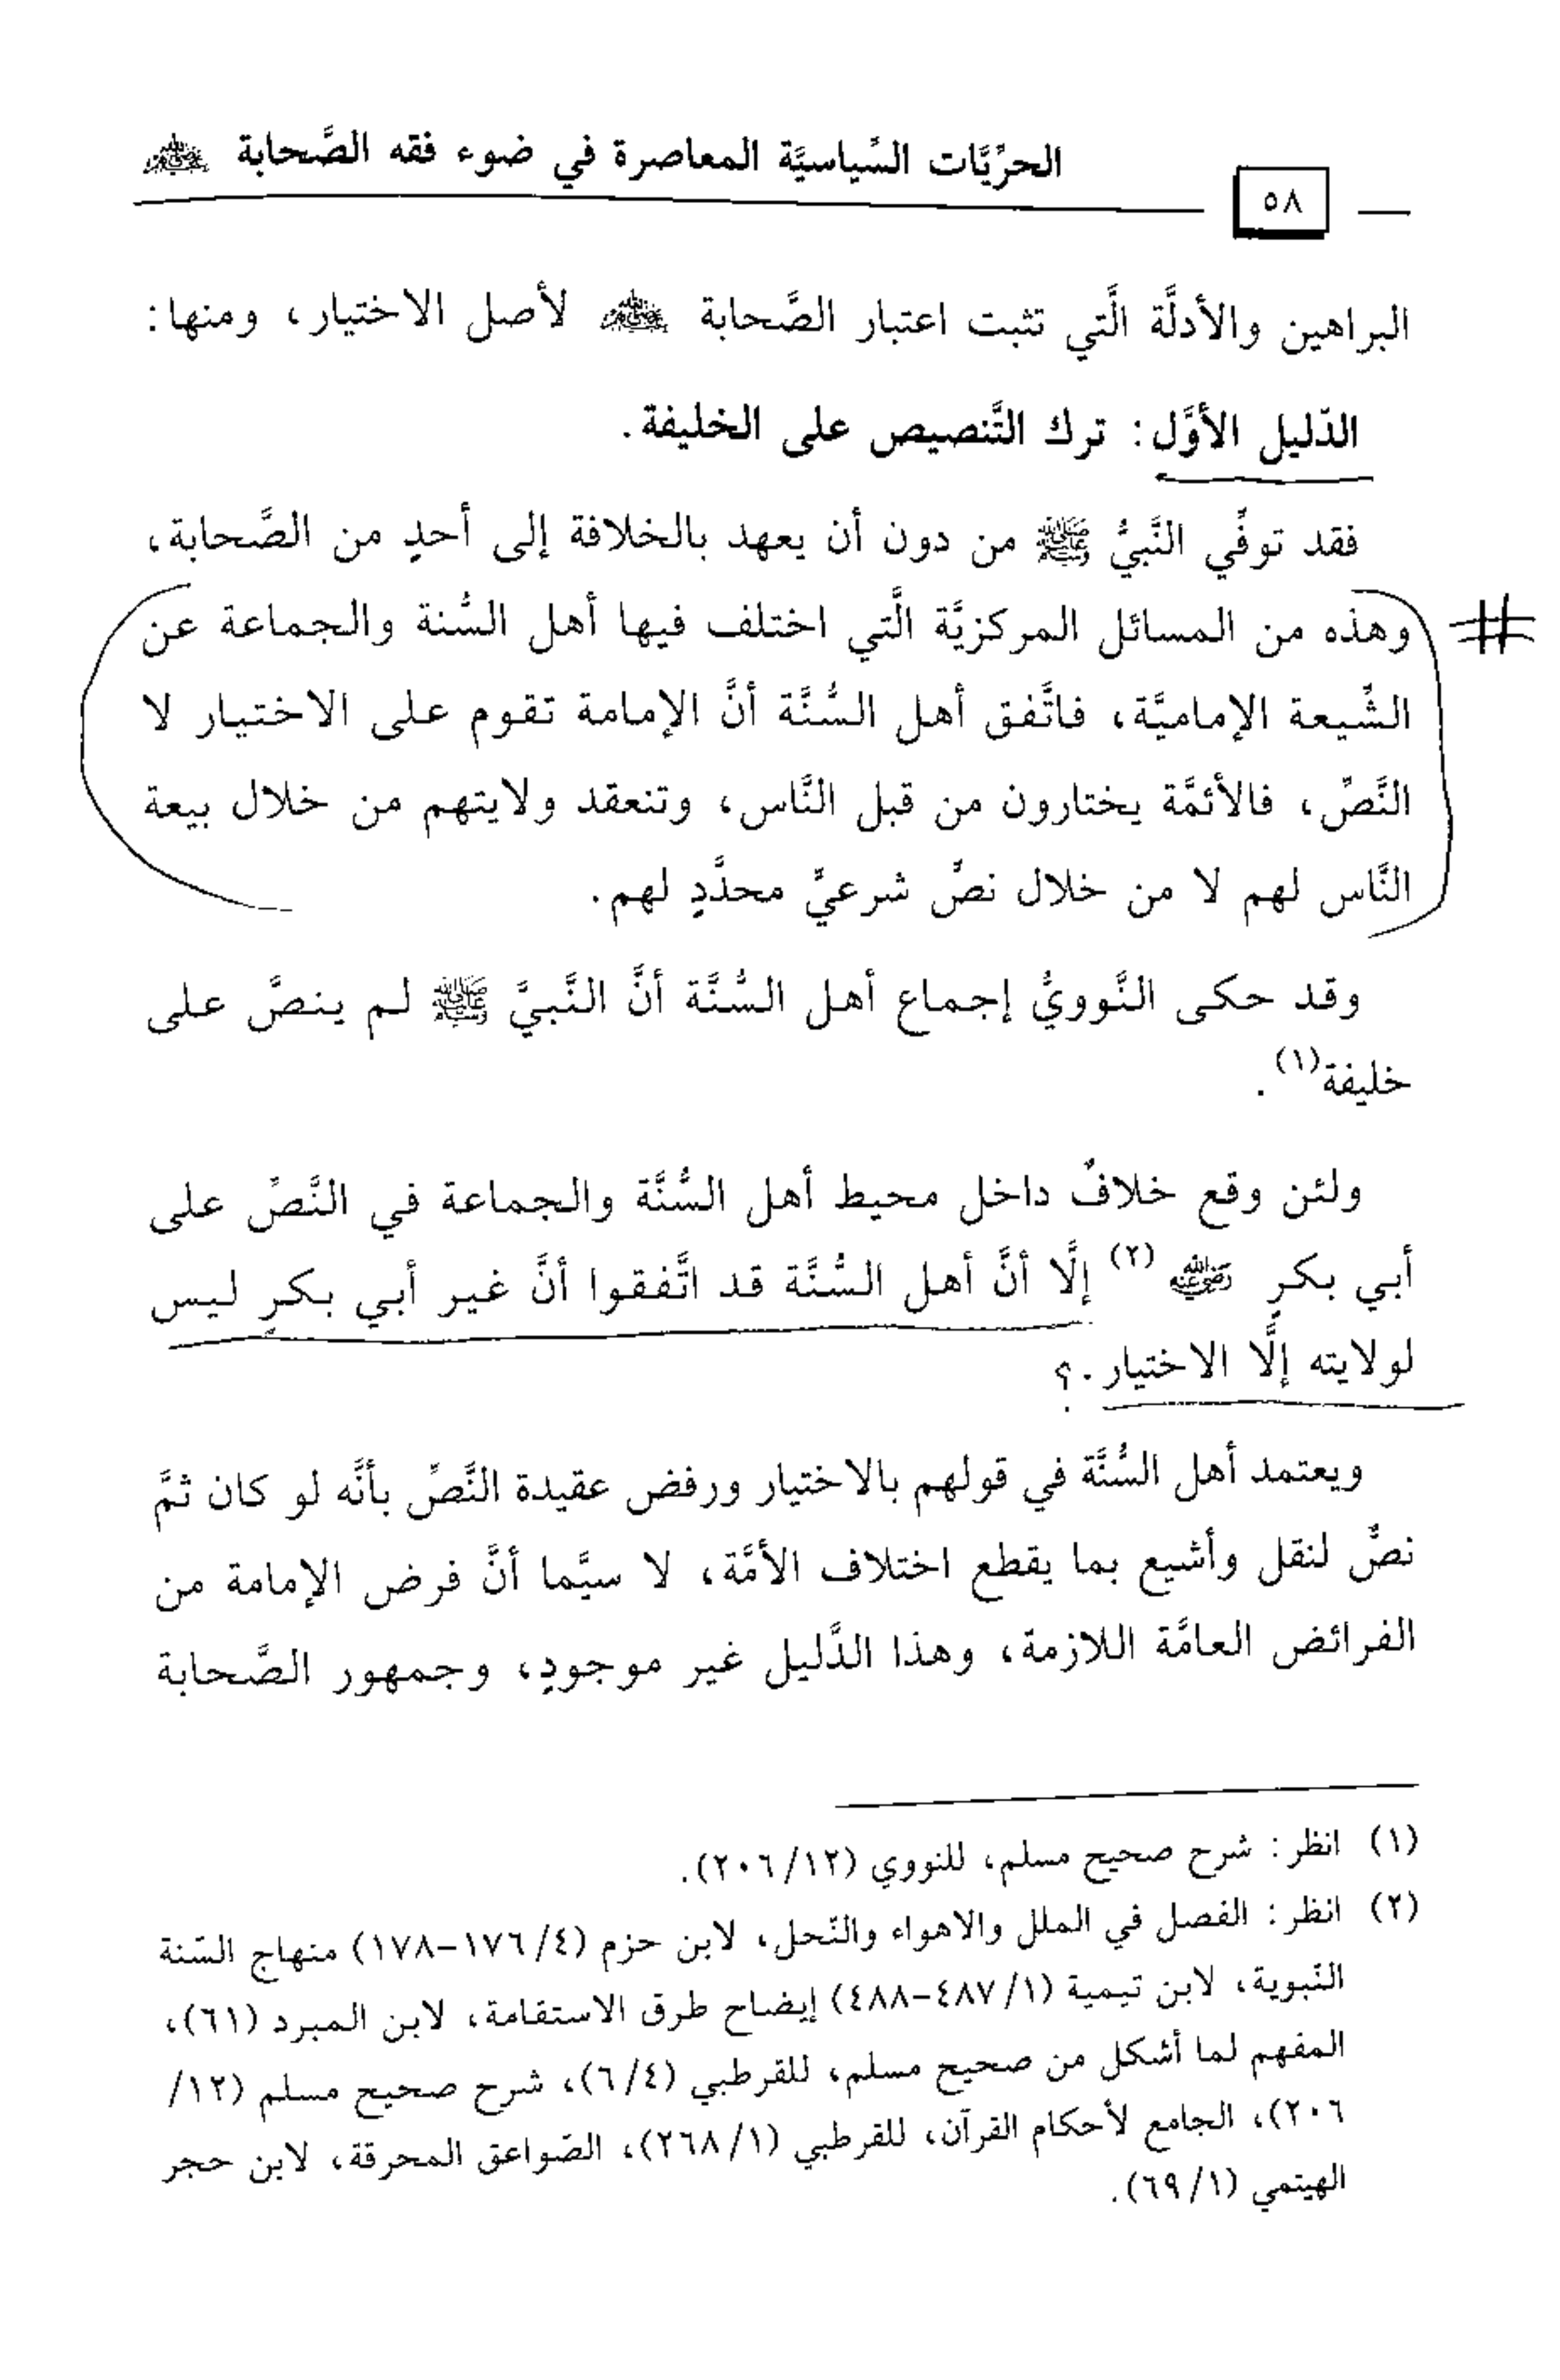 الحرِّيَّات السِّياسيَّة المعاصرة في ضوء فقه الصَّحابة ﵃
٥٨
البراهين والأدلَّة الَّتي تثبت اعتبار الصَّحابة ﵃ لأصل الاختيار، ومنها:
الدّليل الأوَّل: ترك التَّنصيص على الخليفة.
فقد توفِّي النَّبيُّ ﷺ من دون أن يعهد بالخلافة إلى أحدٍ من الصَّحابة،
وهذه من المسائل المركزيَّة الَّتي اختلف فيها أهل السُّنة والجماعة عن
الشِّيعة الإماميَّة، فاتَّفق أهل السُّنَّة أنَّ الإمامة تقوم على الاختيار لا
النَّصِّ، فالأئمَّة يختارون من قبل النَّاس، وتنعقد ولايتهم من خلال بيعة
النَّاس لهم لا من خلال نصٍّ شرعيٍّ محدَّدٍ لهم.
وقد حكى النَّوويُّ إجماع أهل السُّنَّة أنَّ النَّبيَّ ﷺ لم ينصَّ على
خليفة(١).
ولئن وقع خلافٌ داخل محيط أهل السُّنَّة والجماعة في النَّصِّ على
أبي بكرٍ ﵁ (٢) إلَّا أنَّ أهل السُّنَّة قد اتَّفقوا أنَّ غير أبي بكرٍ ليس
لولايته إلَّا الاختيار.؟
ويعتمد أهل السُّنَّة في قولهم بالاختيار ورفض عقيدة النَّصِّ بأنَّه لو كان ثمَّ
نصٌّ لنقل وأشيع بما يقطع اختلاف الأمَّة، لا سيَّما أنَّ فرض الإمامة من
الفرائض العامَّة اللازمة، وهذا الدَّليل غير موجودٍ، وجمهور الصَّحابة
(١) انظر: شرح صحيح مسلم، للنووي (٢٠٦/١٢).
(٢) انظر: الفصل في الملل والاهواء والنّحل، لابن حزم (٤/ ١٧٦-١٧٨) منهاج السّنة
النّبوية، لابن تيمية (١/ ٤٨٧-٤٨٨) إيضاح طرق الاستقامة، لابن المبرد (٦١)،
المفهم لما أشكل من صحيح مسلم، للقرطبي (٦/٤)، شرح صحيح مسلم (١٢/
٢٠٦)، الجامع لأحكام القرآن، للقرطبي (٢٦٨/١)، الصّواعق المحرقة، لابن حجر
الهيتمي (٦٩/١).